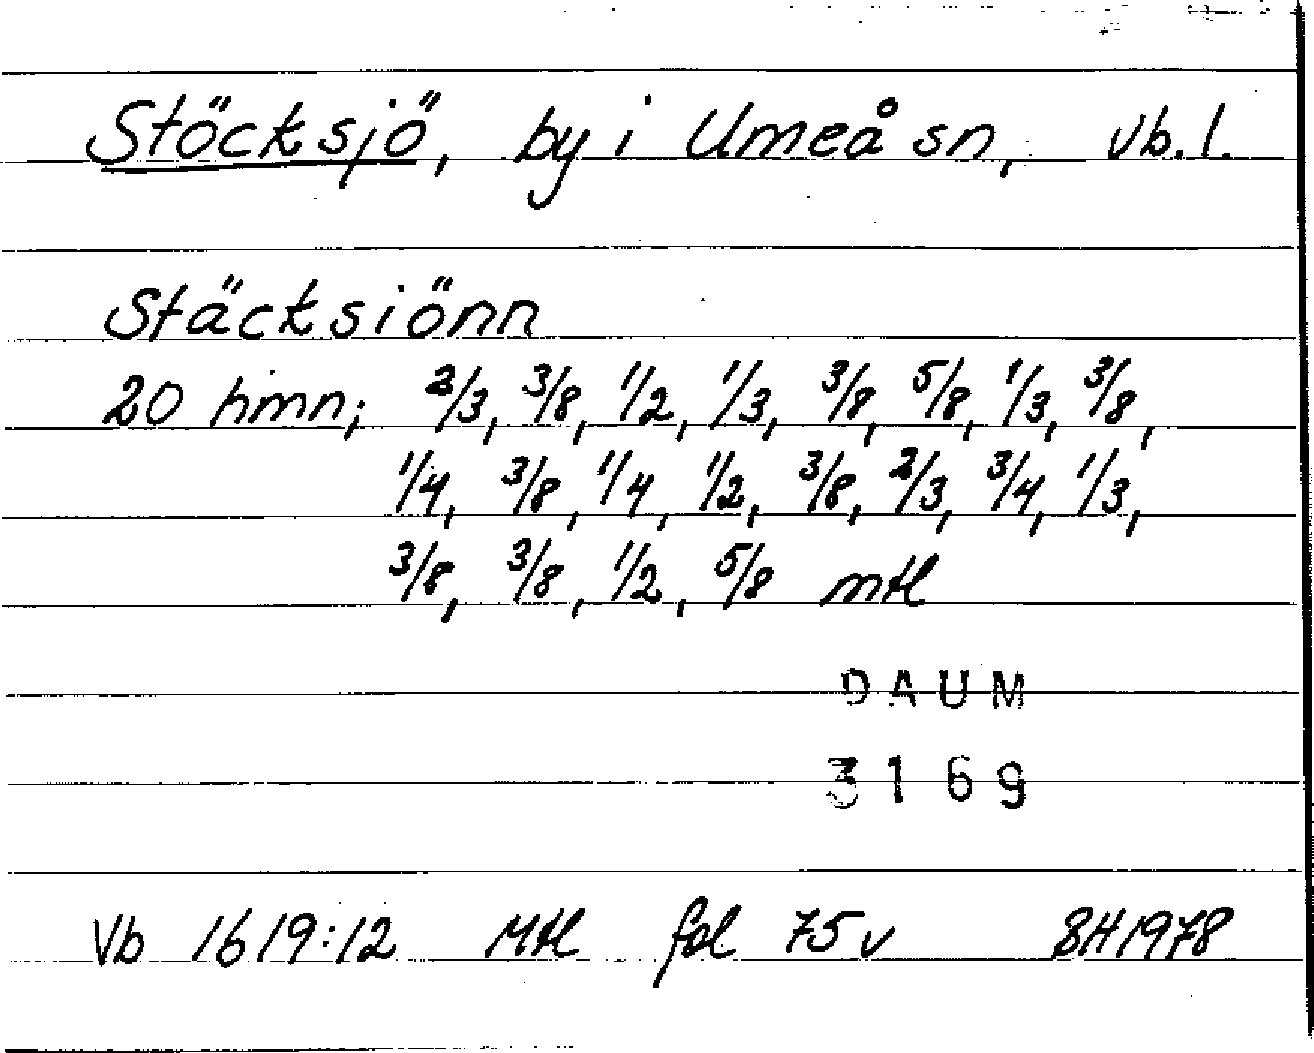 Stöcksjö, by i Umeå sn, Vb. l.
Stäcksiönn
20 hmn; 2/3, 3/8, 1/2, 1/3, 3/8, 5/8, 1/3, 3/8,
1/4, 3/8, 1/4, 1/2, 3/8, 2/3, 3/4, 1/3,
3/8, 3/8, 1/2, 5/8 mtl
DAUM
3169
Vb 1619:12 Mtl fol 75 v BH 1978